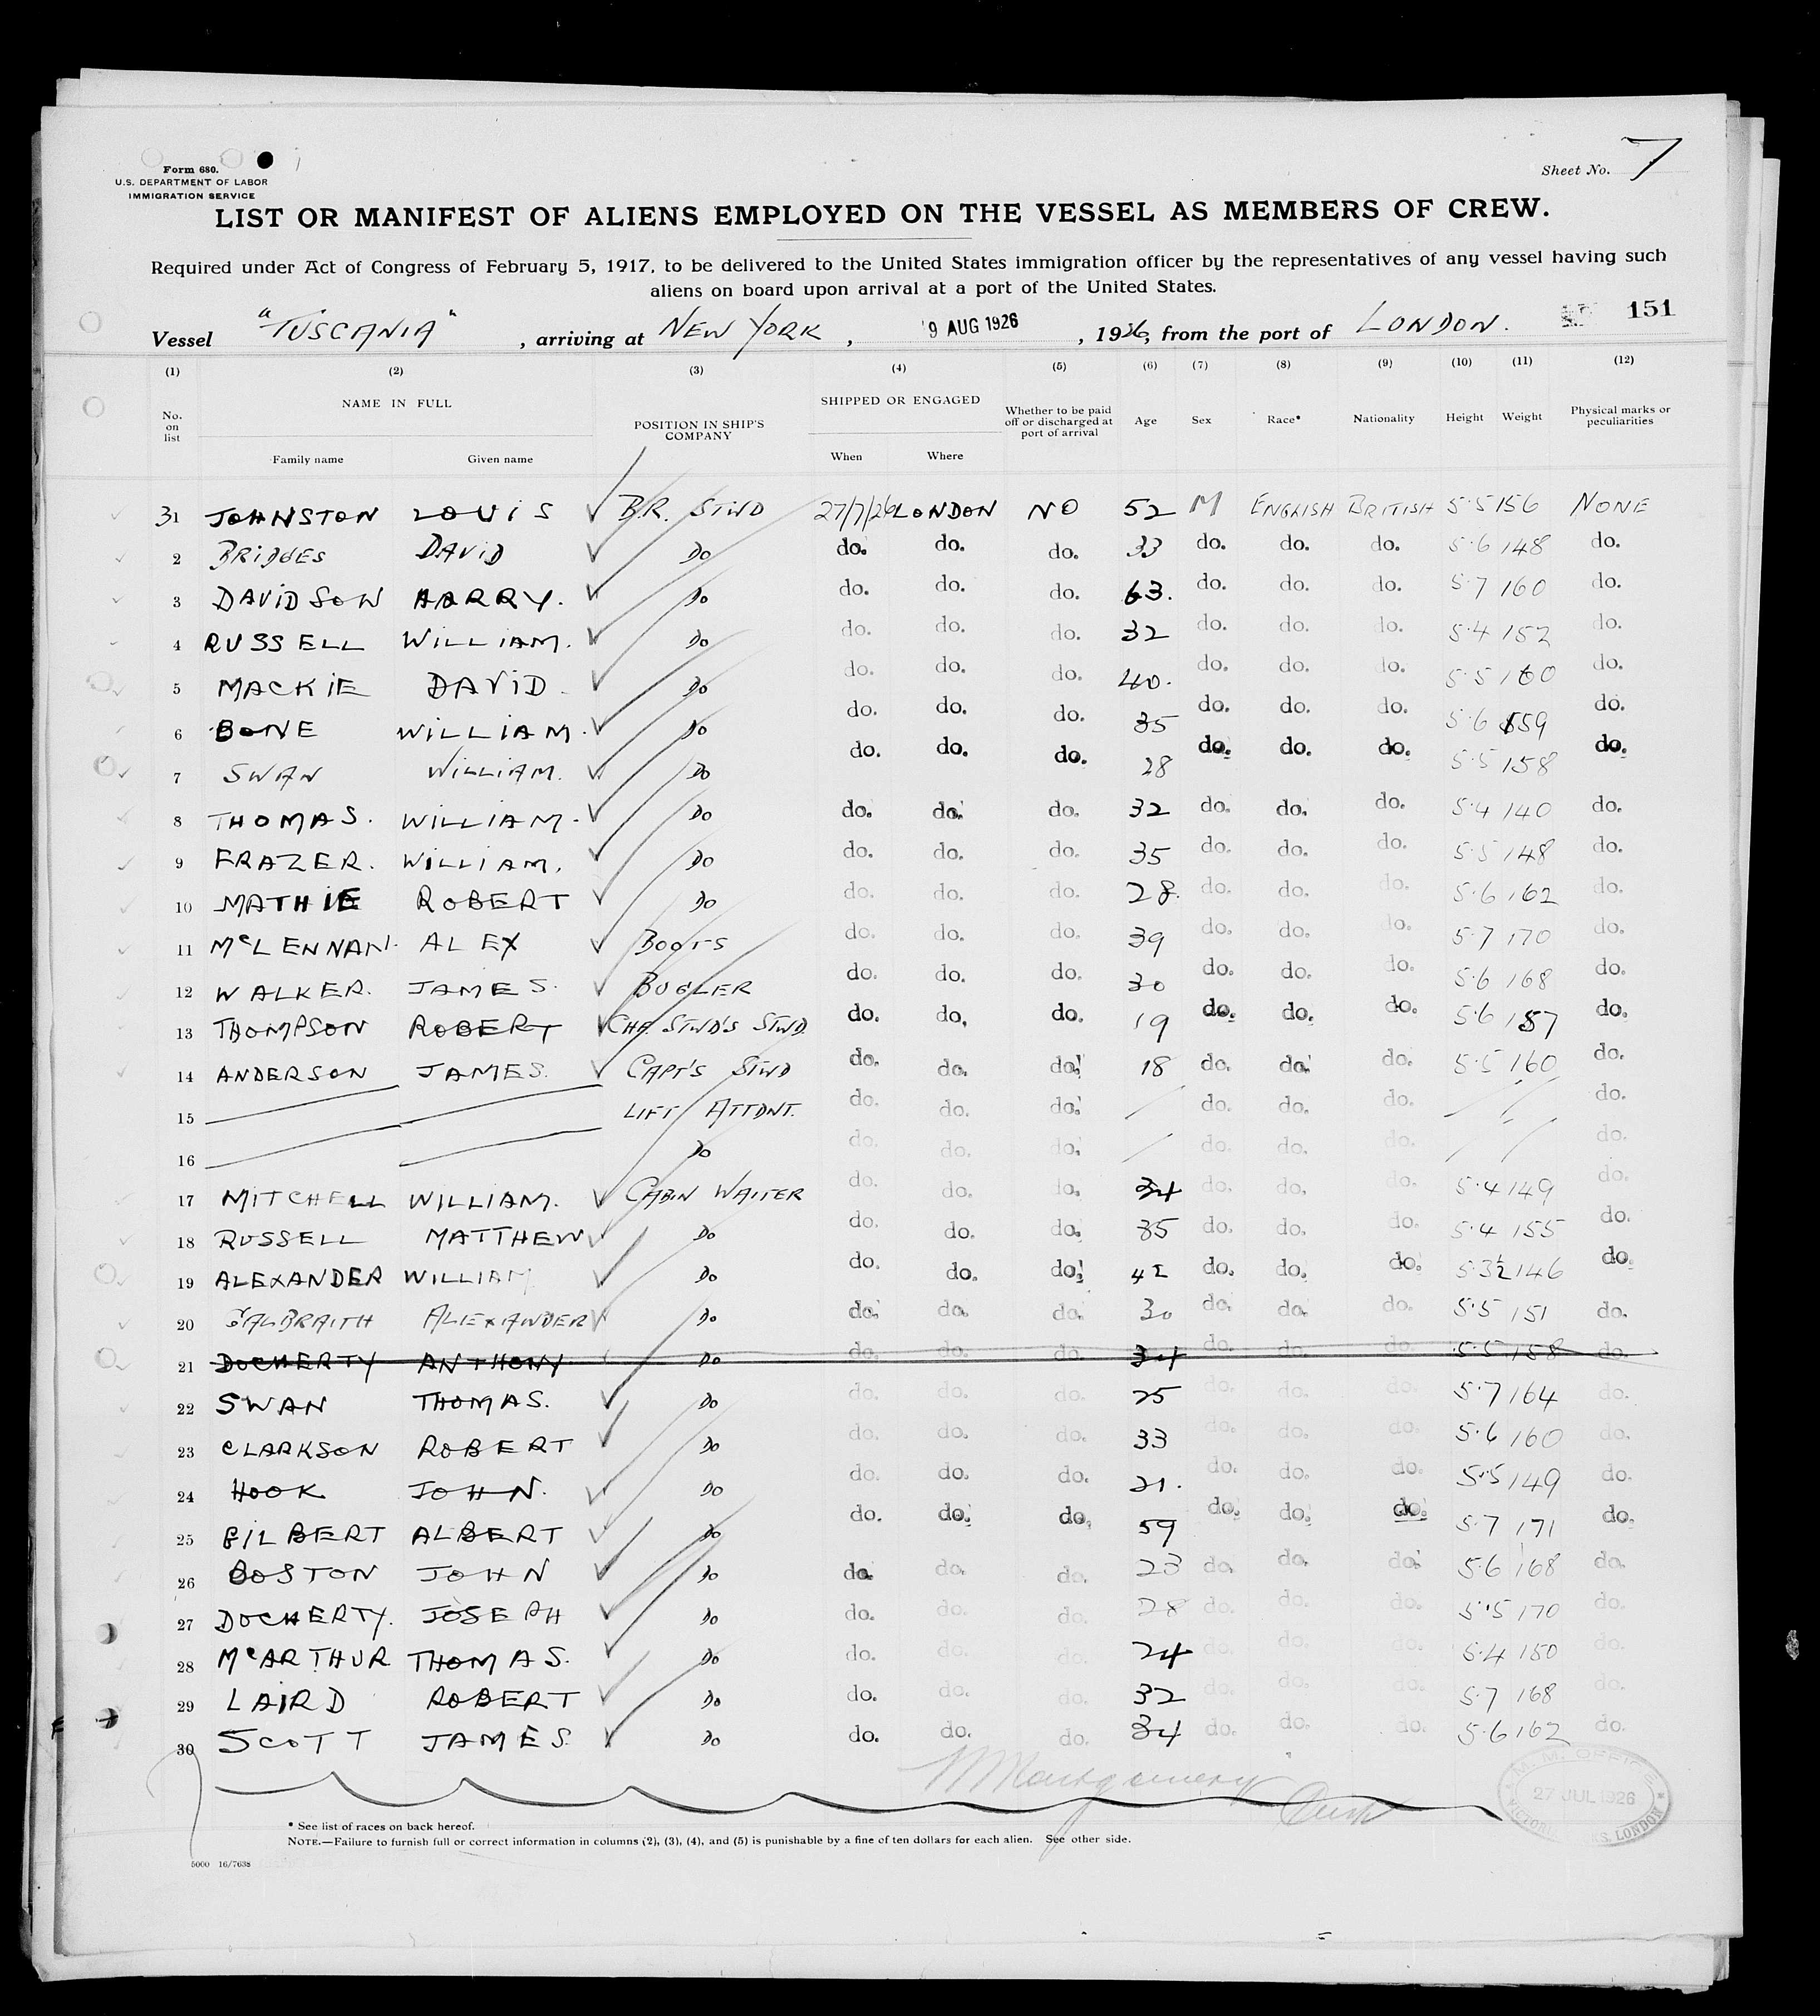 Form 680.
U.S. DEPARTMENT OF LABOR
IMMIGRATION SERVICE
Sheet No. 7
LIST OR MANIFEST OF ALIENS EMPLOYED ON THE VESSEL AS MEMBERS OF CREW.
Required under Act of Congress of February 5, 1917, to be delivered to the United States immigration officer by the representatives of any vessel having such
aliens on board upon arrival at a port of the United States.
151
Vessel "TUSCANIA", arriving at NEW YORK, 9 AUG 1926, 1926, from the port of LONDON.
(1) (2) (3) (4) (5) (6) (7) (8) (9) (10) (11) (12)
No. on list NAME IN FULL Family name Given name POSITION IN SHIP'S COMPANY SHIPPED OR ENGAGED When Where Whether to be paid off or discharged at port of arrival Age Sex Race* Nationality Height Weight Physical marks or peculiarities
31 JOHNSTON LOUIS B.R. STWD 27/7/26 LONDON NO 52 M ENGLISH BRITISH 5·5 156 NONE
2 BRIDGES DAVID DO do. do. do. 33 do. do. do. 5·6 148 do.
3 DAVIDSON HARRY. DO do. do. do. 63. do. do. do. 5·7 160 do.
4 RUSSELL WILLIAM. DO do. do. do. 32 do. do. do. 5·4 152 do.
5 MACKIE DAVID. DO do. do. do. 40. do. do. do. 5·5 160 do.
6 BONE WILLIAM. DO do. do. do. 35 do. do. do. 5·6 159 do.
7 SWAN WILLIAM. DO do. do. do. 28 do. do. do. 5·5 158 do.
8 THOMAS. WILLIAM. DO do. do. do. 32 do. do. do. 5·4 140 do.
9 FRAZER. WILLIAM. DO do. do. do. 35 do. do. do. 5·5 148 do.
10 MATHIE ROBERT DO do. do. do. 28. do. do. do. 5·6 162 do.
11 McLENNAN. ALEX BOOTS do. do. do. 39 do. do. do. 5·7 170 do.
12 WALKER. JAMES. BUGLER do. do. do. 30 do. do. do. 5·6 168 do.
13 THOMPSON ROBERT CHF. STWD'S STWD. do. do. do. 19 do. do. do. 5·6 157 do.
14 ANDERSON JAMES. CAPT'S STWD do. do. do. 18 do. do. do. 5·5 160 do.
15 LIFT ATTDNT. do. do. do. do. do. do. do.
16 DO do. do. do. do. do. do. do.
17 MITCHELL WILLIAM. CABIN WAITER do. do. do. 34 do. do. do. 5·4 149 do.
18 RUSSELL MATTHEW DO do. do. do. 35 do. do. do. 5·4 155 do.
19 ALEXANDER WILLIAM DO do. do. do. do. do. do. 5·3½ 146 do.
20 GALBRAITH ALEXANDER DO do. do. do. 30 do. do. do. 5·5 151 do.
21 DOCHERTY ANTHONY DO do. do. do. 34 do. do. do. 5·5 158 do.
22 SWAN THOMAS. DO do. do. do. 25 do. do. do. 5·7 164 do.
23 CLARKSON ROBERT DO do. do. do. 33 do. do. do. 5·6 160 do.
24 HOOK JOHN. DO do. do. do. 21. do. do. do. 5·5 149 do.
25 GILBERT ALBERT DO do. do. do. 59 do. do. do. 5·7 171 do.
26 BOSTON JOHN DO do. do. do. 23 do. do. do. 5·6 168 do.
27 DOCHERTY. JOSEPH DO do. do. do. 28 do. do. do. 5·5 170 do.
28 McARTHUR THOMAS. DO do. do. do. 24 do. do. do. 5·4 150 do.
29 LAIRD ROBERT DO do. do. do. 32 do. do. do. 5·7 168 do.
30 SCOTT JAMES. DO do. do. do. 34 do. do. do. 5·6 162 do.
Montgomery
27 JUL 1926
LONDON
* See list of races on back hereof.
NOTE.—Failure to furnish full or correct information in columns (2), (3), (4), and (5) is punishable by a fine of ten dollars for each alien. See other side.
5000 16/7638